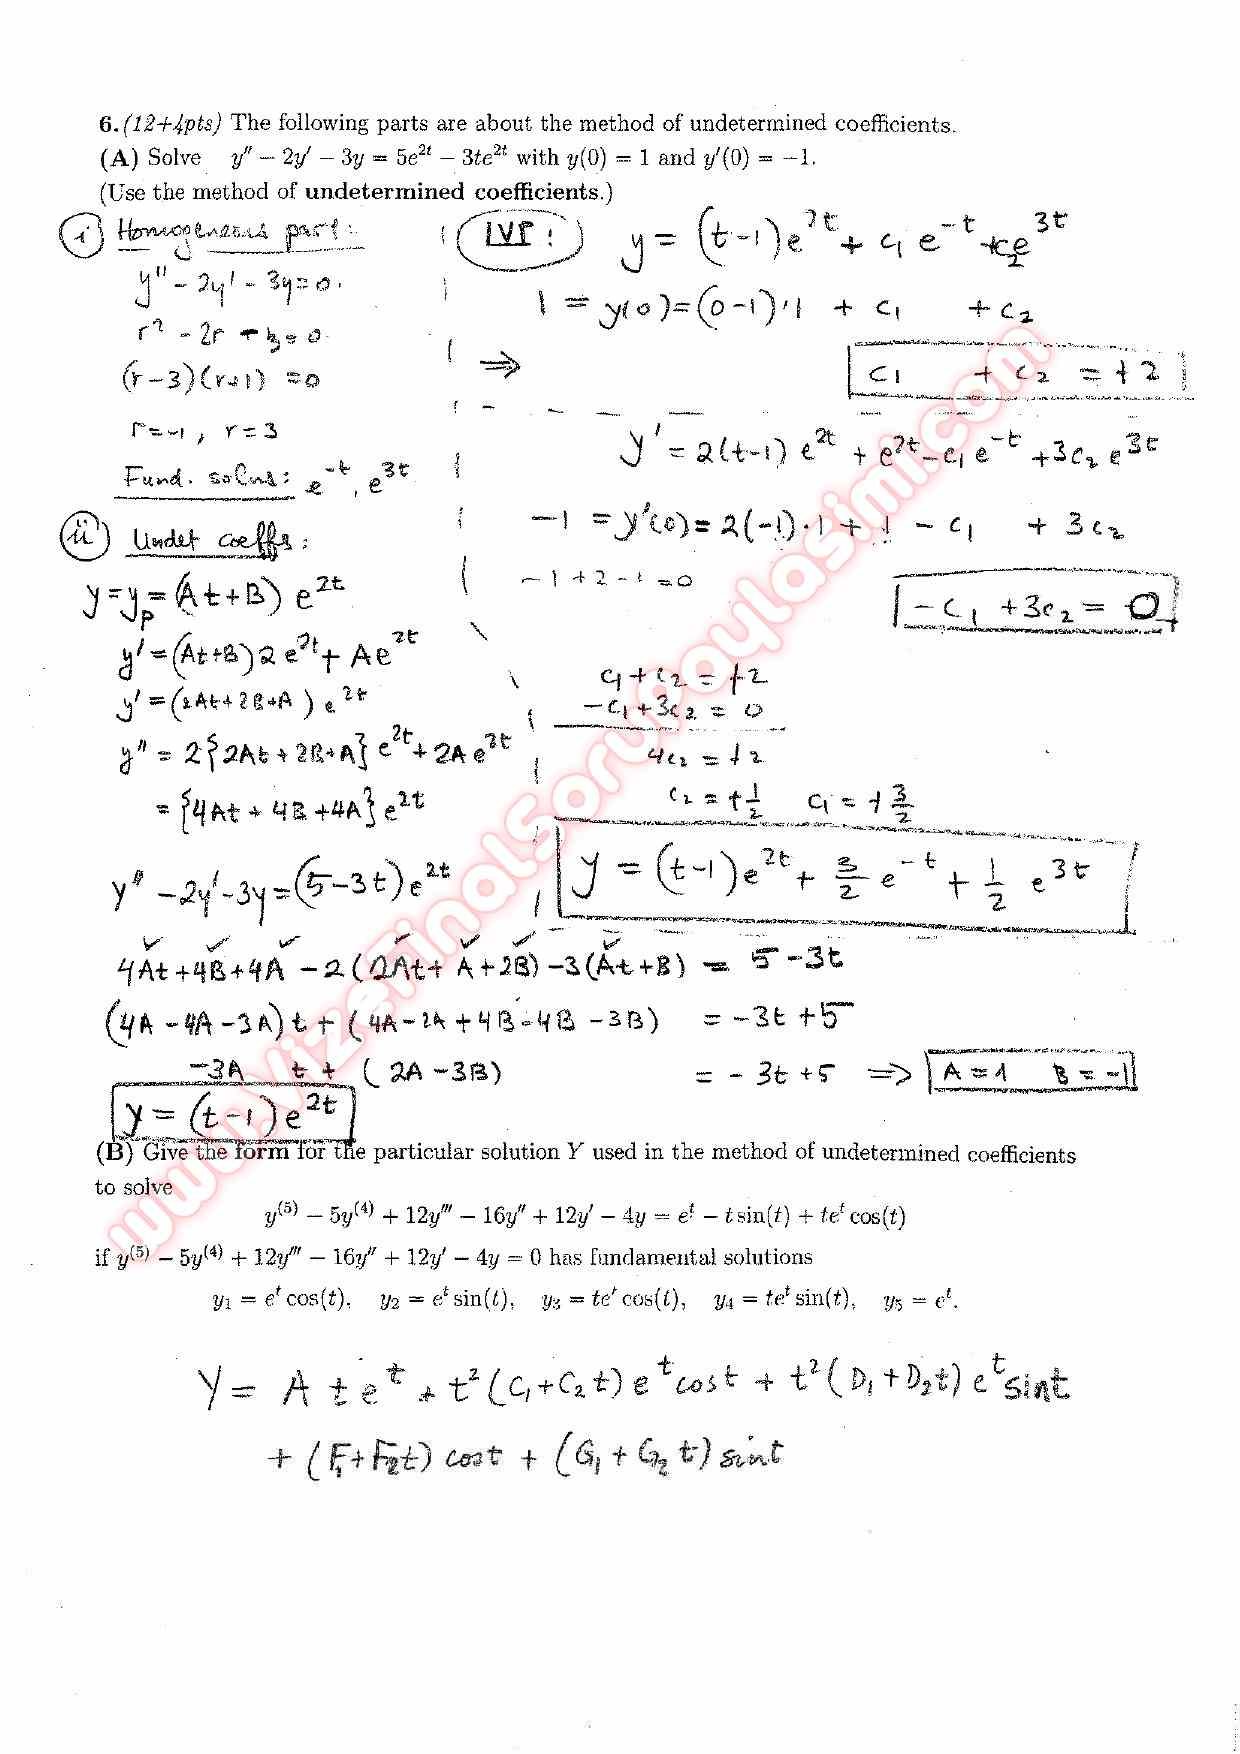 6.(12+4pts) The following parts are about the method of undetermined coefficients.
(A) Solve y″ − 2y′ − 3y = 5e^{2t} − 3te^{2t} with y(0) = 1 and y′(0) = −1.
(Use the method of undetermined coefficients.)
(i) Homogeneous part:
y″ − 2y′ − 3y = 0.
r² − 2r − 3 = 0
(r−3)(r+1) = 0
r = −1, r = 3
Fund. solns: e^{−t}, e^{3t}
(ii) Undet coeffs:
y = y_p = (At+B) e^{2t}
y′ = (At+B)2e^{2t} + Ae^{2t}
y′ = (2At+2B+A) e^{2t}
y″ = 2{2At+2B+A} e^{2t} + 2Ae^{2t}
= {4At + 4B + 4A} e^{2t}
y″ − 2y′ − 3y = (5−3t)e^{2t}
4At+4B+4A − 2(2At + A+2B) − 3(At+B) = 5 − 3t
(4A − 4A − 3A)t + (4A − 2A + 4B − 4B − 3B) = −3t + 5
−3A t + (2A − 3B) = −3t + 5 ⇒ A = 1 B = −1
y = (t−1)e^{2t}
IVP: y = (t−1)e^{2t} + c₁e^{−t} + c₂e^{3t}
1 = y(0) = (0−1)·1 + c₁ + c₂
⇒ c₁ + c₂ = +2
y′ = 2(t−1)e^{2t} + e^{2t} − c₁e^{−t} + 3c₂e^{3t}
−1 = y′(0) = 2(−1)·1 + 1 − c₁ + 3c₂
−1 + 2 − 1 = 0
−c₁ + 3c₂ = 0
c₁ + c₂ = +2
−c₁ + 3c₂ = 0
4c₂ = +2
c₂ = +1/2 c₁ = +3/2
y = (t−1)e^{2t} + 3/2 e^{−t} + 1/2 e^{3t}
(B) Give the form for the particular solution Y used in the method of undetermined coefficients
to solve
y^{(5)} − 5y^{(4)} + 12y‴ − 16y″ + 12y′ − 4y = e^t − t sin(t) + te^t cos(t)
if y^{(5)} − 5y^{(4)} + 12y‴ − 16y″ + 12y′ − 4y = 0 has fundamental solutions
y₁ = e^t cos(t), y₂ = e^t sin(t), y₃ = te^t cos(t), y₄ = te^t sin(t), y₅ = e^t.
Y = A t e^t + t²(C₁+C₂t) e^t cost + t²(D₁+D₂t) e^t sint
+ (F₁+F₂t) cost + (G₁+G₂t) sint
www.VizeFinalSoruPaylasimi.com